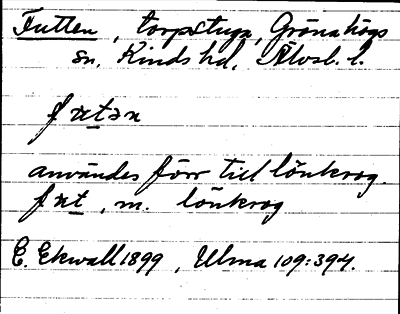 Futten, torpstuga, Grönahögs
sn. Kinds hd. Älvsb. l.
användes förr till lönkrog.
, m. lönkrog
E. Ekwall 1899, Ulma 109:394.